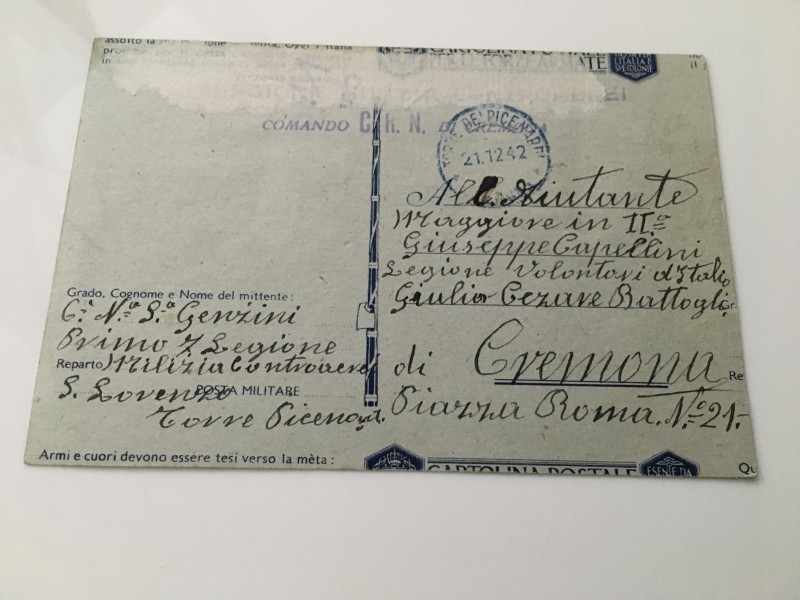 assolto la
Oggi l'Italia
CARTOLINA POSTALE
PER LE FORZE ARMATE
ESENTE DA
D'ITALIA E
SUE COLONIE
il
COMANDO C.R.N. DI CREMONA
TORRE DE' PICENARDI
21.12.42
All. Aiutante
Maggiore in IIª
Giuseppe Capellini
Legione Volontari d'Italia
Giulio Cezare Battoglio
di Cremona
Piazza Roma. N.º 21.
Grado, Cognome e Nome del mittente:
C.ª N.ª S.ª Genzini
Primo 7 Legione
Reparto Milizia Controaerei
S. Lorenzo POSTA MILITARE
Torre Picenard.
Armi e cuori devono essere tesi verso la mèta:
CARTOLINA POSTALE
ESENTE DA